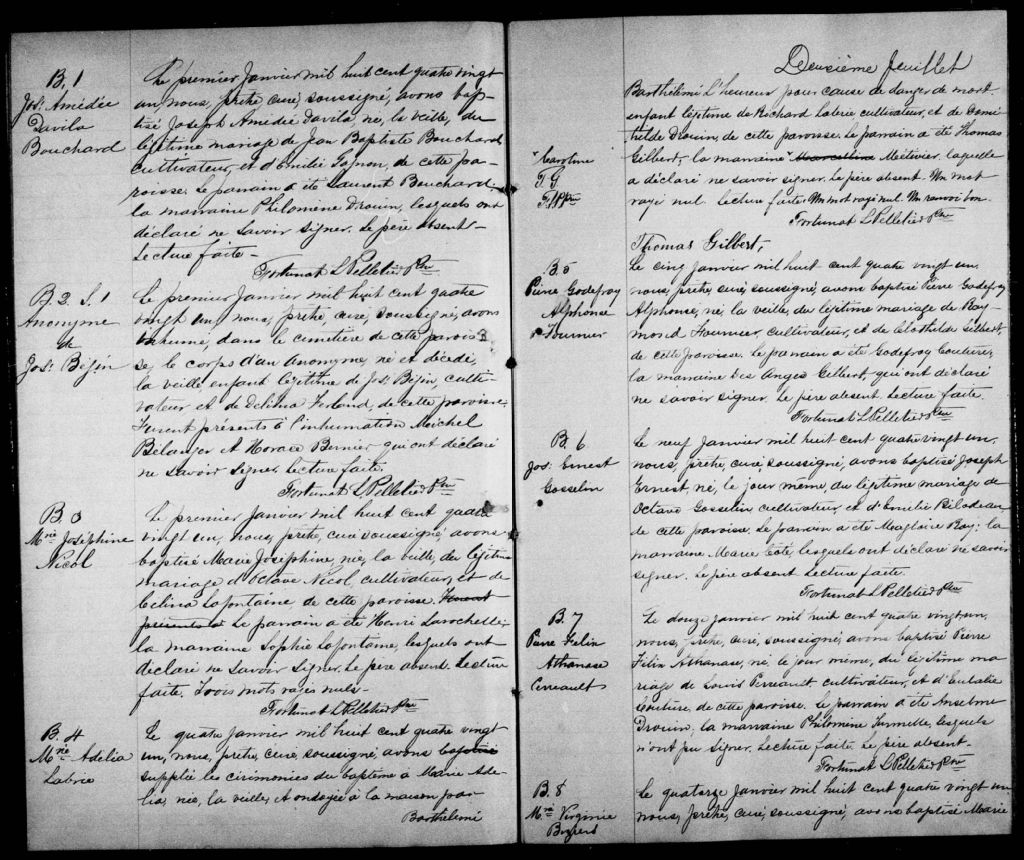 B. 1
Jos. Amédée
Davila
Bouchard
Le premier Janvier mil huit cent quatre vingt
un nous, prêtre, curé, soussigné, avons bap-
tisé Joseph Amédée Davila né, la veille, du
légitime mariage de Jean Baptiste Bouchard
cultivateur, et d'Emilie Gagnon, de cette pa-
roisse. Le parrain a été Laurent Bouchard;
la marraine Philomène Drouin, lesquels ont
déclaré ne savoir signer. Le père absent-
Lecture faite-
Fortunat L Pelletier Ptre
B. 2 S. 1
Anonyme
de
Jos. Bégin
Le premier Janvier mil huit cent quatre
vingt un, nous, prêtre, curé, soussigné, avons
inhumé, dans le cimetière de cette parois-
se, le corps d'un Anonyme, né et décédé,
la veille enfant légitime de Jos. Bégin, culti-
vateur et de Délina Ferland, de cette paroisse,
Furent présents à l'inhumation Michel
Bélanger et Horace Bernier qui ont déclaré
ne savoir signer. Lecture faite.
Fortunat L Pelletier Ptre
B. 3
Mrie Joséphine
Nicol
Le premier Janvier mil huit cent quatre
vingt un, nous, prêtre, curé, soussigné, avons
baptisé Marie Joséphine, née, la veille, du légitime
mariage d'Octave Nicol, cultivateur, et de
Célina Lafontaine de cette paroisse. Furent
présents à Le parrain a été Henri Larochelle;
la marraine Sophie Lafontaine, lesquels ont
déclaré ne savoir signer. Le père absent. Lecture
faite. Trois mots rayés nuls-
Fortunat L Pelletier Ptre
B. 4
Mrie Adélia
Labrie
Le quatre janvier mil huit cent quatre vingt
un, nous, prêtre, curé, soussigné, avons baptisé
supplié les cérémonies du baptême à Marie Adé-
lia, née, la veille, et ondoyée à la maison par
Barthélémi
Deuxième feuillet
Barthélémi L'heureux pour cause de danger de mort
enfant légitime de Richard Labrie cultivateur, et de Domi-
thilde Drouin, de cette paroisse. Le parrain a été Thomas
Gilbert, la marraine " Marcelline Métivier, laquelle
a déclaré ne savoir signer. Le père absent. Un mot
rayé nul. Lecture faite. Un mot rayé nul. Un renvoi bon.
" Caroline
T. G.
F. L. P. Ptre
Fortunat L Pelletier Ptre
Thomas Gilbert,
B. 5
Pierre Godefroy
Alphonse
Fournier
Le cinq janvier mil huit cent quatre vingt un,
nous, prêtre, curé, soussigné, avons baptisé Pierre Godefroy
Alphonse, né, la veille, du légitime mariage de Ray-
mond Fournier, cultivateur, et de Clothilde Gilbert,
de cette paroisse. Le parrain a été Godefroy Couture,
la marraine Des Anges Gilbert, qui ont déclaré
ne savoir signer. Le père absent. Lecture faite.
Fortunat L Pelletier Ptre
B. 6
Jos. Ernest
Gosselin
Le neuf janvier mil huit cent quatre vingt un,
nous, prêtre, curé, soussigné, avons baptisé Joseph
Ernest, né, le jour même, du légitime mariage de
Octave Gosselin cultivateur, et d'Emélie Bilodeau
de cette paroisse. Le parrain a été Magloire Roy; la
marraine Marie Côté, lesquels ont déclaré ne savoir
signer. Le père absent Lecture faite.
Fortunat L Pelletier Ptre
B. 7
Pierre Felix
Athanase
Perreault
Le douze janvier mil huit cent quatre vingt un,
nous, prêtre, curé, soussigné, avons baptisé Pierre
Félix Athanase, né, le jour même, du légitime ma-
riage de Louis Perreault cultivateur, et d'Eulalie
Couture, de cette paroisse. Le parrain a été Anselme
Drouin, la marraine Philomène Turmelle, lesquels
n'ont pu signer. Lecture faite. Le père absent-
Fortunat L Pelletier Ptre
B. 8
Mrie Virginie
Le quatorze janvier mil huit cent quatre vingt un
nous, prêtre, curé, soussigné, avons baptisé Marie